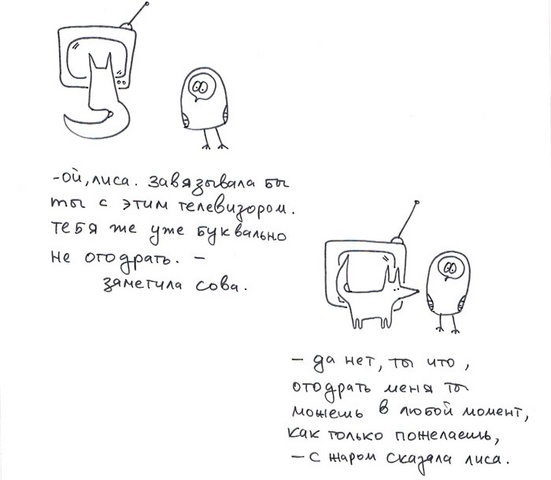 -ой, лиса. завязывала бы
ты с этим телевизором.
тебя же уже буквально
не отодрать. -
заметила сова.
- да нет, ты что,
отодрать меня ты
можешь в любой момент,
как только пожелаешь,
- с жаром сказала лиса.